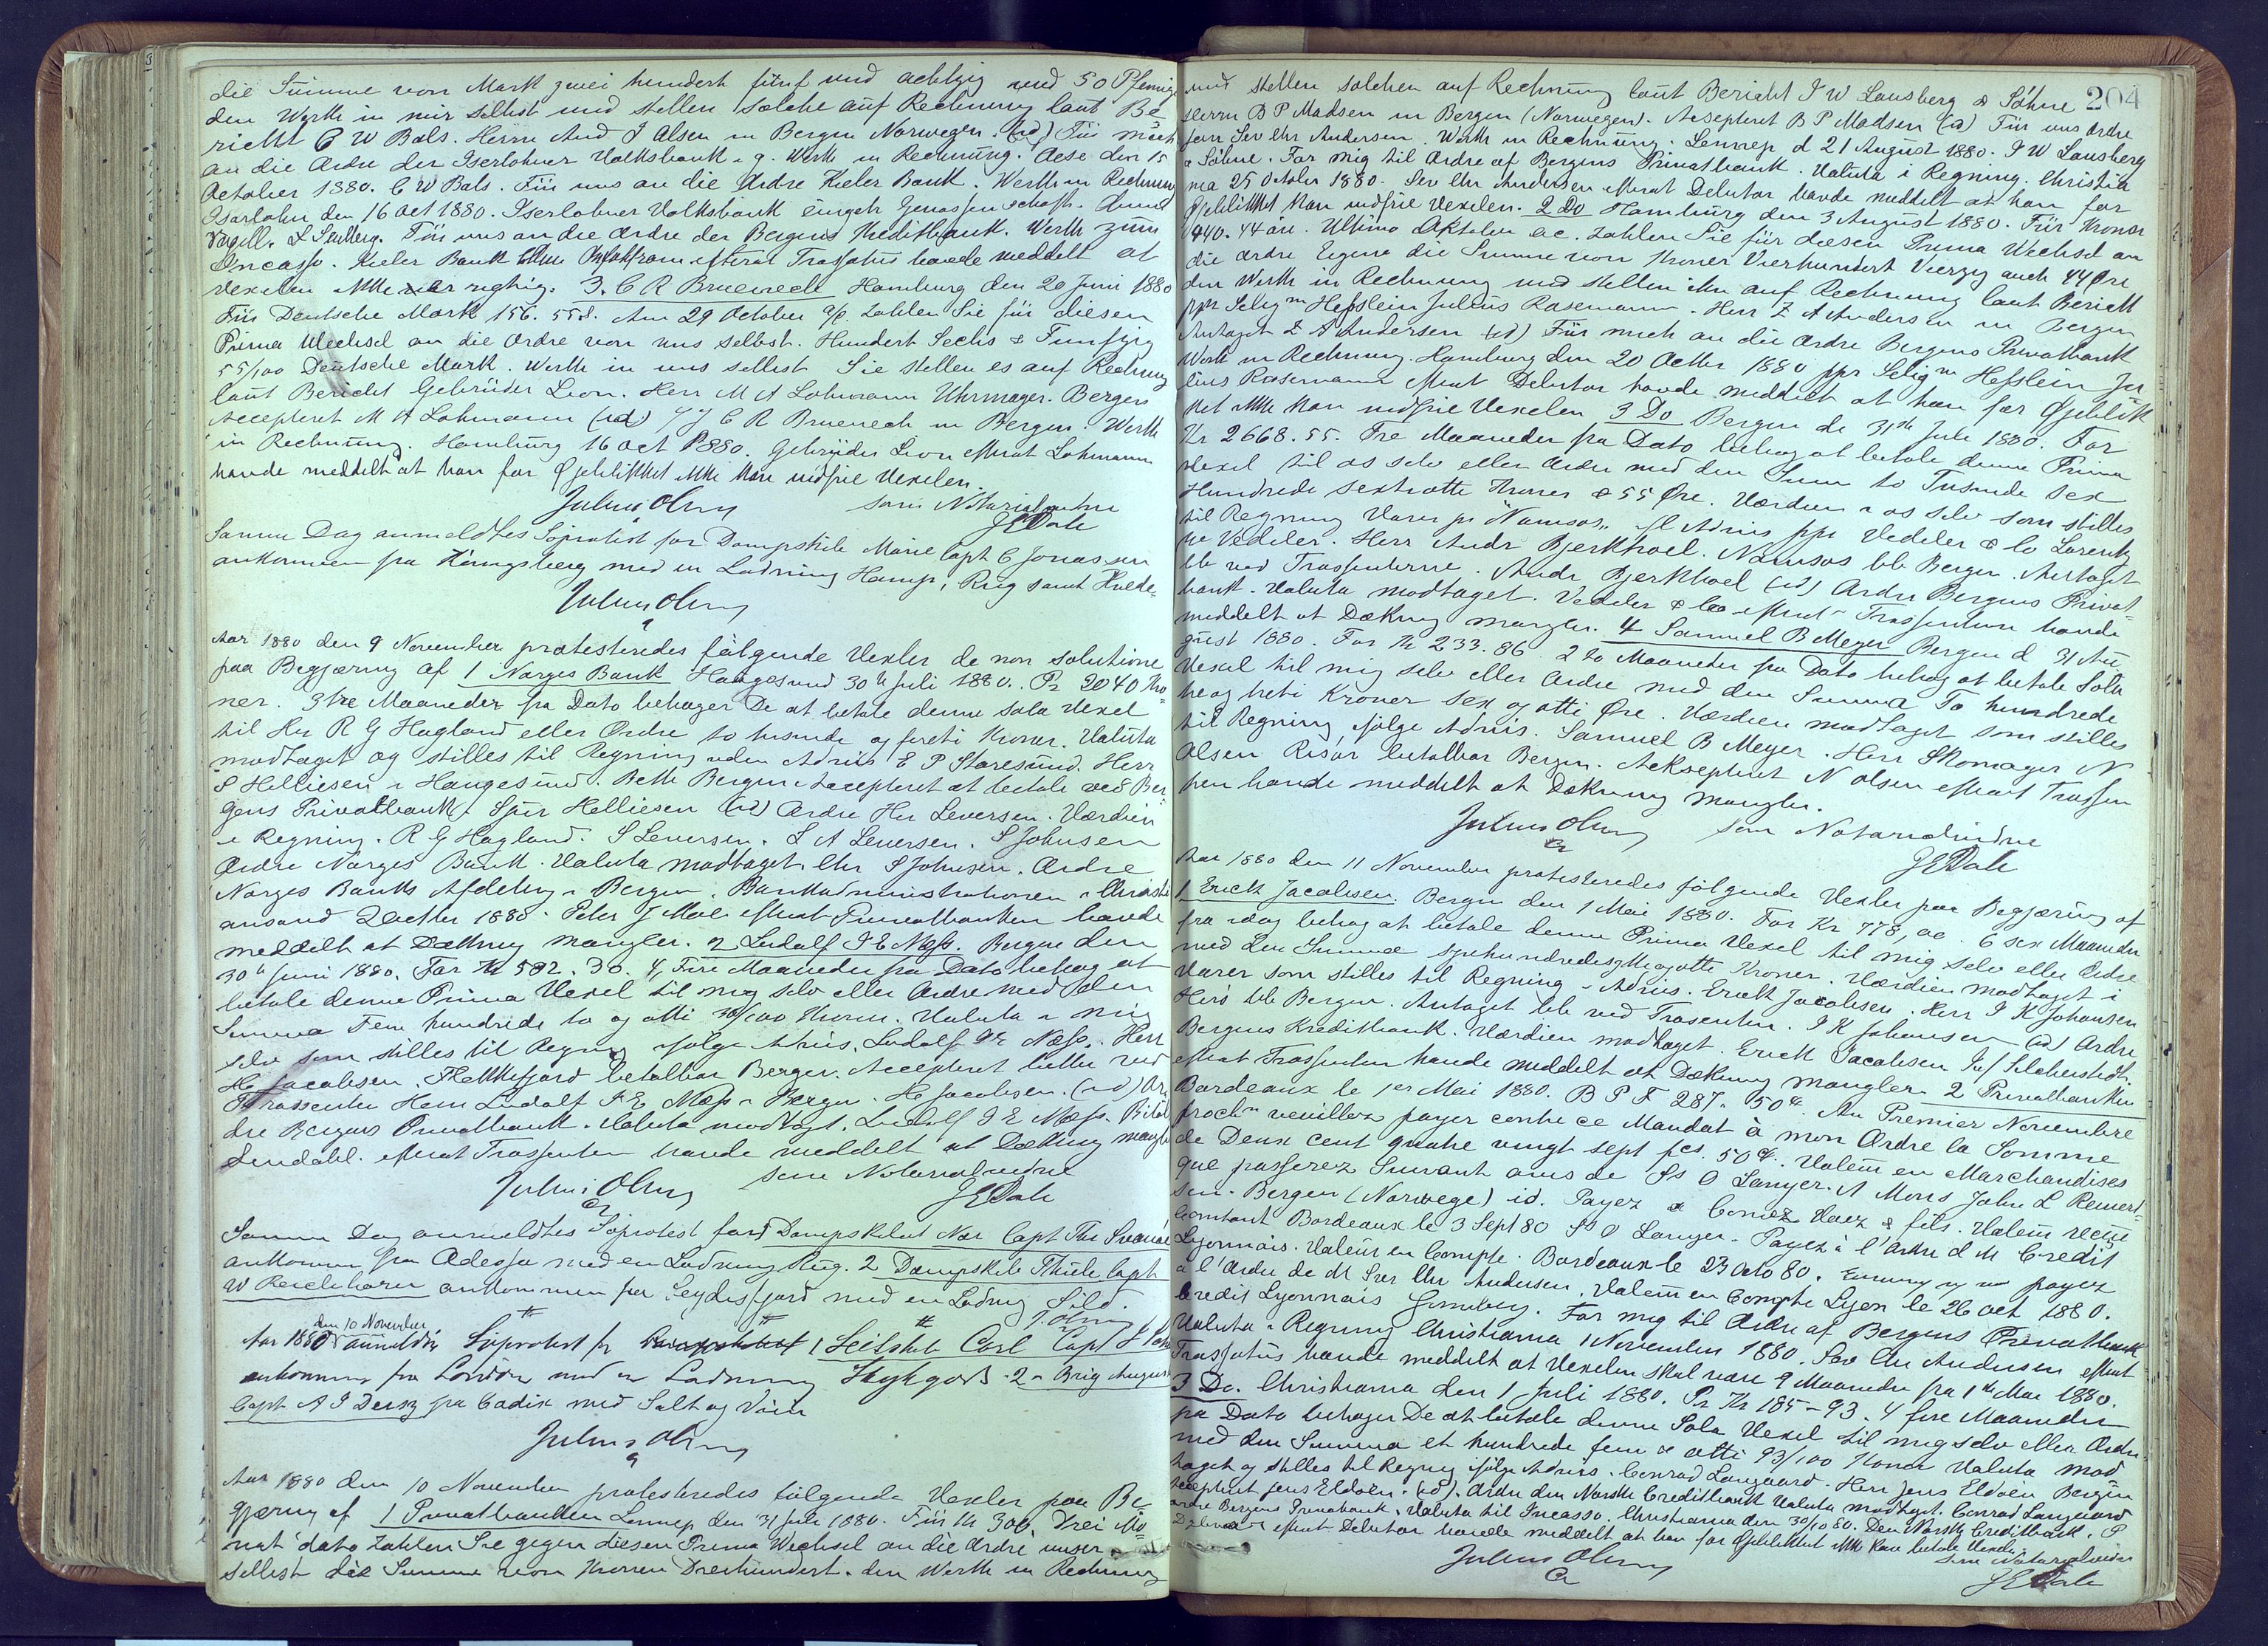 die Summe von Mark zwei hundert fünf und achtzig und 50 Pfennig
den Werth in mir selbst und stellen solche auf Rechnung laut Be
richt C W Bals. Herrn And J Olsen in Bergen Norwegen. (id) Für mich
an die Ordre der Iserlohner Volksbank e. g. Werth in Rechnung. den 15
October 1880. C W Bals. Für uns an die Ordre Kieler Bank. Werth in Rechnung
Iserlohn den 16 Oct 1880. Iserlohner Volksbank eingetr Genossenschaft.
Für uns an die Ordre der Bergens Kreditbank. Werth zum
Incasso. Kieler Bank efterat Trassatus havde meddelt at
Vexelen ikke er rigtig. 3. C R Bruenech Hamburg den 20 Juni 1880
Für Deutsche Mark 156. 55 d. Am 29 October a/c. Zahlen Sie für diesen
Prima Wechsel an die Ordre von uns selbst. Hundert Sechs & Funfzig
55/100 Deutsche Mark. Werth in uns selbst Sie stellen es auf Rechnung
laut Bericht Gebrüder Leon. Herr M A Lohmann Uhrmager. Bergen
Accepteret M A Lohmann (id) C R Bruenech in Bergen. Werth
in Rechnung. Hamburg 16 Oct 1880. Gebrüder Leon efterat Lohmann
havde meddelt at han for Øjeblikket ikke kan indfrie Vexelen.
Julius Olsen som Notarialvidne
J E Dale
Samme Dag anmeldtes Söprotest for Dampskib Marie Capt C Jonassen
ankommen fra Königsberg med en Ladning Hamp, Rug samt Hvede
Julius Olsen
Aar 1880 den 9 November protesteredes følgende Vexler de non solutione
paa Begjæring af 1 Norges Bank Haugesund 30te Juli 1880. Pr 2040 Kro
ner. 3 tre Maaneder fra Dato behager De at betale denne sola Vexel
til Her R G Hagland eller Ordre to tusinde og fireti Kroner. Valuta
modtaget og stilles til Regning uden Advis E P Staresund. Herr
S Helliesen i Haugesund. Betb Bergen Accepteret at betale ved Ber
gens Privatbank. Helliesen (id) Ordre Her Leversen. Værdien
i Regning. R G Hagland. S Leversen. L A Leversen. S Johnsen
Ordre Norges Bank. Valuta modtaget. Chr S Johnsen. Ordre
Norges Banks Afdeling i Bergen. Bankadministrationen i Christi
ansand 2 Octbr 1880. Peter J Moe efterat Privatbanken havde
meddelt at Dækning mangler. 2 Ludolf J E Næss. Bergen den
30te Juni 1880. For Kr 582. 30. 4, Fire Maaneder fra Dato behag at
betale denne Prima Vexel til mig selv eller Ordre med den
Summa Fem hundrede to og otti 30/100 Kroner. Valuta i mig
selv som stilles til Regning ifølge Advis. Ludolf J E Næss. Herr
H Jacobsen. Flekkefjord betalbar Bergen. Accepteret betler ved
Trassenten Herr Ludolf J E Næss i Bergen. H Jacobsen. (id) Or
dre Bergens Privatbank. Valuta modtagt. Ludolf J E Næss.
Lendahl. efterat Trassenten havde meddelt at Dækning mangler
Julius Olsen som Notarialvidne
J E Dale
Samme Dag anmeldtes Söprotest for 1 Dampskibet Nor Capt Ths
ankommen fra Odessa med en Ladning Rug. 2 Dampskib Thule Capt
W Reichborn ankommen fra Seydisfjord med en Ladning Sild.
J. Olsen
Aar 1880 den 10 November anmeldtes Søprotest for 1 Seilskib Carl Capt
ankommen fra London med en Ladning Stykgods. 2 Brig August
Capt A J fra Cadix med Salt og Viin
Julius Olsen
Aar 1880 den 10 November protesteredes følgende Vexler paa Be
gjæring af 1 Privatbanken Lennep den 31 Juli 1880. Für Kr 300. Drei Mo
nat dato Zahlen Sie gegen diesen Prima Wechsel an die Ordre unser
selbst die Summe von Kronen Dreihundert. den Werth in Rechnung
204
und stellen solchen auf Rechnung laut Bericht J W Lausberg & Söhne
Herrn B P Madsen in Bergen (Norwegen). Accepteret B P Madsen (id) Für uns Ordre
Herrn Sev Chr Andersen. Werth in Rechnung. Lennep d 21 August 1880. J W Lausberg
& Söhne. For mig til Ordre af Bergens Privatbank. Valuta i Regning. Christia
nia 25 October 1880. Sev Chr Andersen efterat Debitor havde meddelt at han for
Øjeblikket kan indfrie Vexelen. 2 Do Hamburg den 3 August 1880. Für Kroner
440. 44 öre. Ultimo Oktober a.c. Zahlen Sie für diesen Prima Wechsel an
die Ordre Eigene die Summe von Kroner Vierhundert Vierzig auch 44 Øre
den Werth in Rechnung und stellen ihn auf Rechnung laut Bericht
ppr Seligm Hesslein Julius Rosemann. Herr Z A Andersen in Bergen
Antaget Z A Andersen (id) Für mich an die Ordre Bergens Privatbank
Werth in Rechnung. Hamburg den 20 Octbr 1880 ppr Seligm Hesslein Ju
lius Rosemann efterat Debitor havde meddelt at han for Øjeblik
ket ikke kan indfrie Vexelen 3 Do Bergen de 31te Juli 1880. For
Kr 2668. 55. Tre Maaneder fra Dato behag at betale denne Prima
Vexel til os selv eller Ordre med den Sum to Tusinde sex
Hundrede sextiotte Kroner & 55 Øre. Værdien i os selv som stilles
til Regning Varer pr "Namsos" fl Advis ppr Vedeler & Co Lorentz
W Vedeler. Herr Andr Bjerkhoel. Namsos btb Bergen. Antaget
btb ved Trassenterne. Andr Bjerkhoel (id) Ordre Bergens Privat
bank. Valuta modtaget. Vedeler & Co efterat Trassenten havde
meddelt at Dækning mangler. 4 Samuel B Meyer Bergen d 31 Au
gust 1880. For Kr 233. 86. 2 to Maaneder fra Dato behag at betale Sola
Vexel til mig selv eller Ordre med den Summa To hundrede
tre og treti Kroner Sex og otti Øre. Værdien modtaget som stilles
til Regning ifølge Advis. Samuel B Meyer. Herr Skomager N
Olsen Risör betalbar Bergen. Aksepteret N Olsen efterat Trassen
ten havde meddelt at Dækning mangler.
Julius Olsen som Notarialvidne
J E Dale
Aar 1880 den 11 November protesteredes følgende Vexler paa Begjæring af
1. Erick Jacobsen. Bergen den 1 Mai 1880. For Kr 778, 00. 6 sex Maaneder
fra idag behag at betale denne Prima Vexel til mig selv eller Ordre
med den Summa syvhundredesyttiogotte Kroner. Værdien modtaget i
Varer som stilles til Regning i Advis. Erick Jacobsen. Herr J K Johansen
Herö btb Bergen. Antaget btb ved Trasenten. J K Johansen (id) Ordre
Bergens Kreditbank. Værdien modtaget. Erick Jacobsen
efterat Trassenten havde meddelt at Dækning mangler 2 Privatbanken
Bordeaux le 1er Mai 1880. B P F 287. 50c. Au Premier Novembre
prochn veuillez payer contre ce Mandat à mon Ordre la Somme
de Deux cent quatre vingt sept fcs. 50c. Valeur en Marchandises
que passerez Suivant avis de O Lanyer. A Mons John L Remert
sen. Bergen (Norwege) id. Payez a Vaez & fils. Valeur recue
Comtant Bordeaux le 3 Sept 80 O Lanyer. Payez à l'ordre d M Credit
Lyonnais. Valeur en Compte. Bordeaux le 23 Octo 80. payez
a l'Ordre de M Sver Chr Andersen, Valeur en Compte Lyon le 26 Oct 1880.
Credit Lyonnais. For mig til Ordre af Bergens Privatbank
Valuta i Regning Christiania 1 November 1880. Sev Chr Andersen efterat
Trassatus havde meddelt at Vexelen skal være 9 Maaneder fra 1te Mai 1880.
3 Do. Christiania den 1 Juli 1880. Pr Kr 185-93. 4 fire Maaneder
fra Dato behager De at betale denne Sola Vexel til mig selv eller Ordre
med den Summa et hundrede fem & otti 93/100 Kroner Valuta mod
taget og stilles til Regning ifølge Advis. Conrad Langaard. Herr Jens Eldöen Bergen
Accepteret Jens Eldöen. (id). Ordre den Norske Creditbank Valuta modtaget. Conrad Langaard
Ordre Bergens Privatbank. Valuta til Incasso. Christiania den 30/10 80. Den Norske Creditbank. P
efterat Debitor havde meddelt at han for Øjeblikket ikke kan betale Vexelen.
Julius Olsen som Notarialvidne
J E Dale